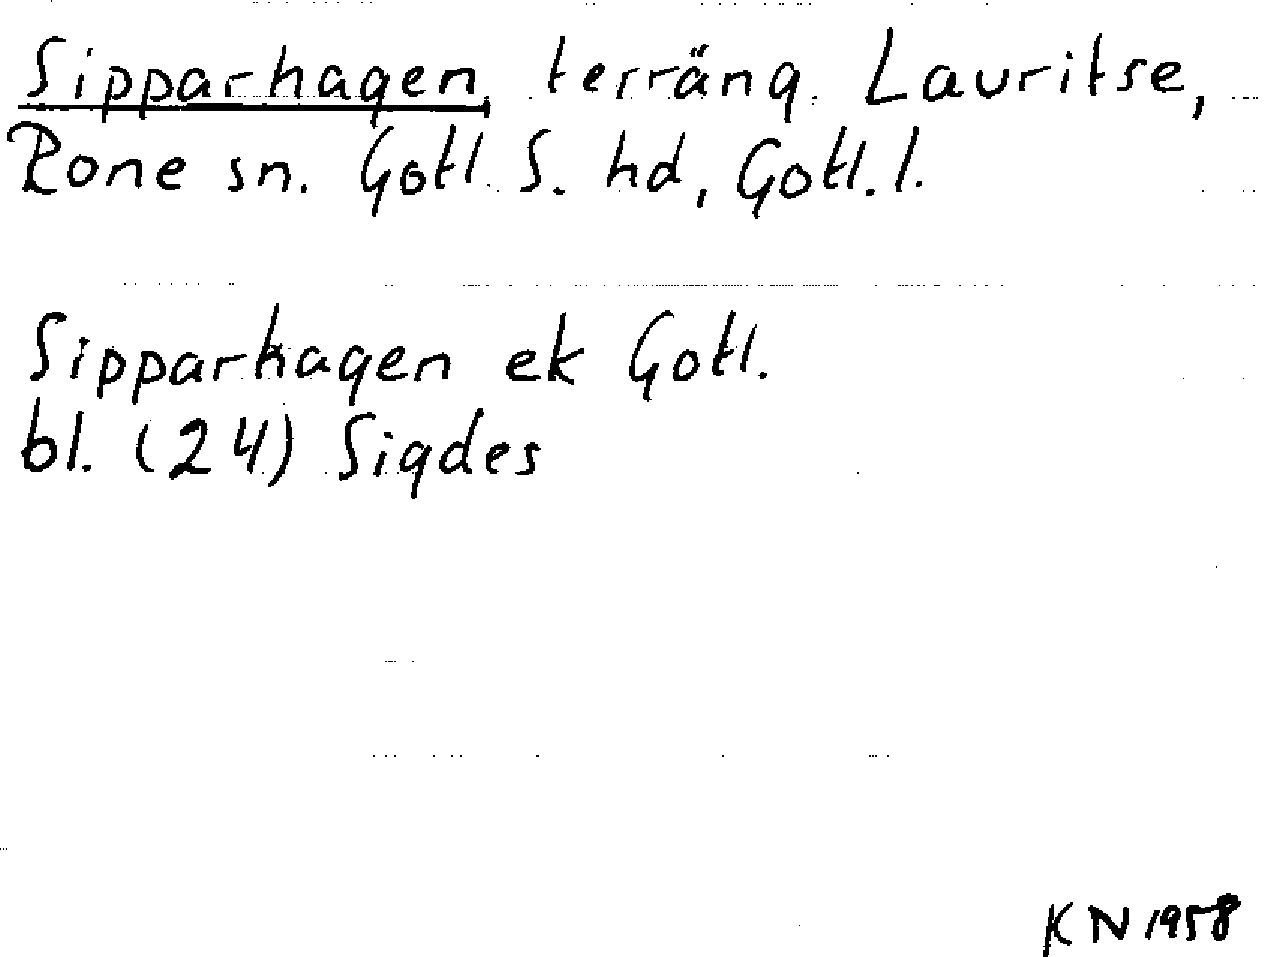 Sipparhagen, terräng. Lauritse,
Rone sn. Gotl. S. hd, Gotl. l.
Sipparhagen ek Gotl.
bl. (24) Sigdes
KN 1958